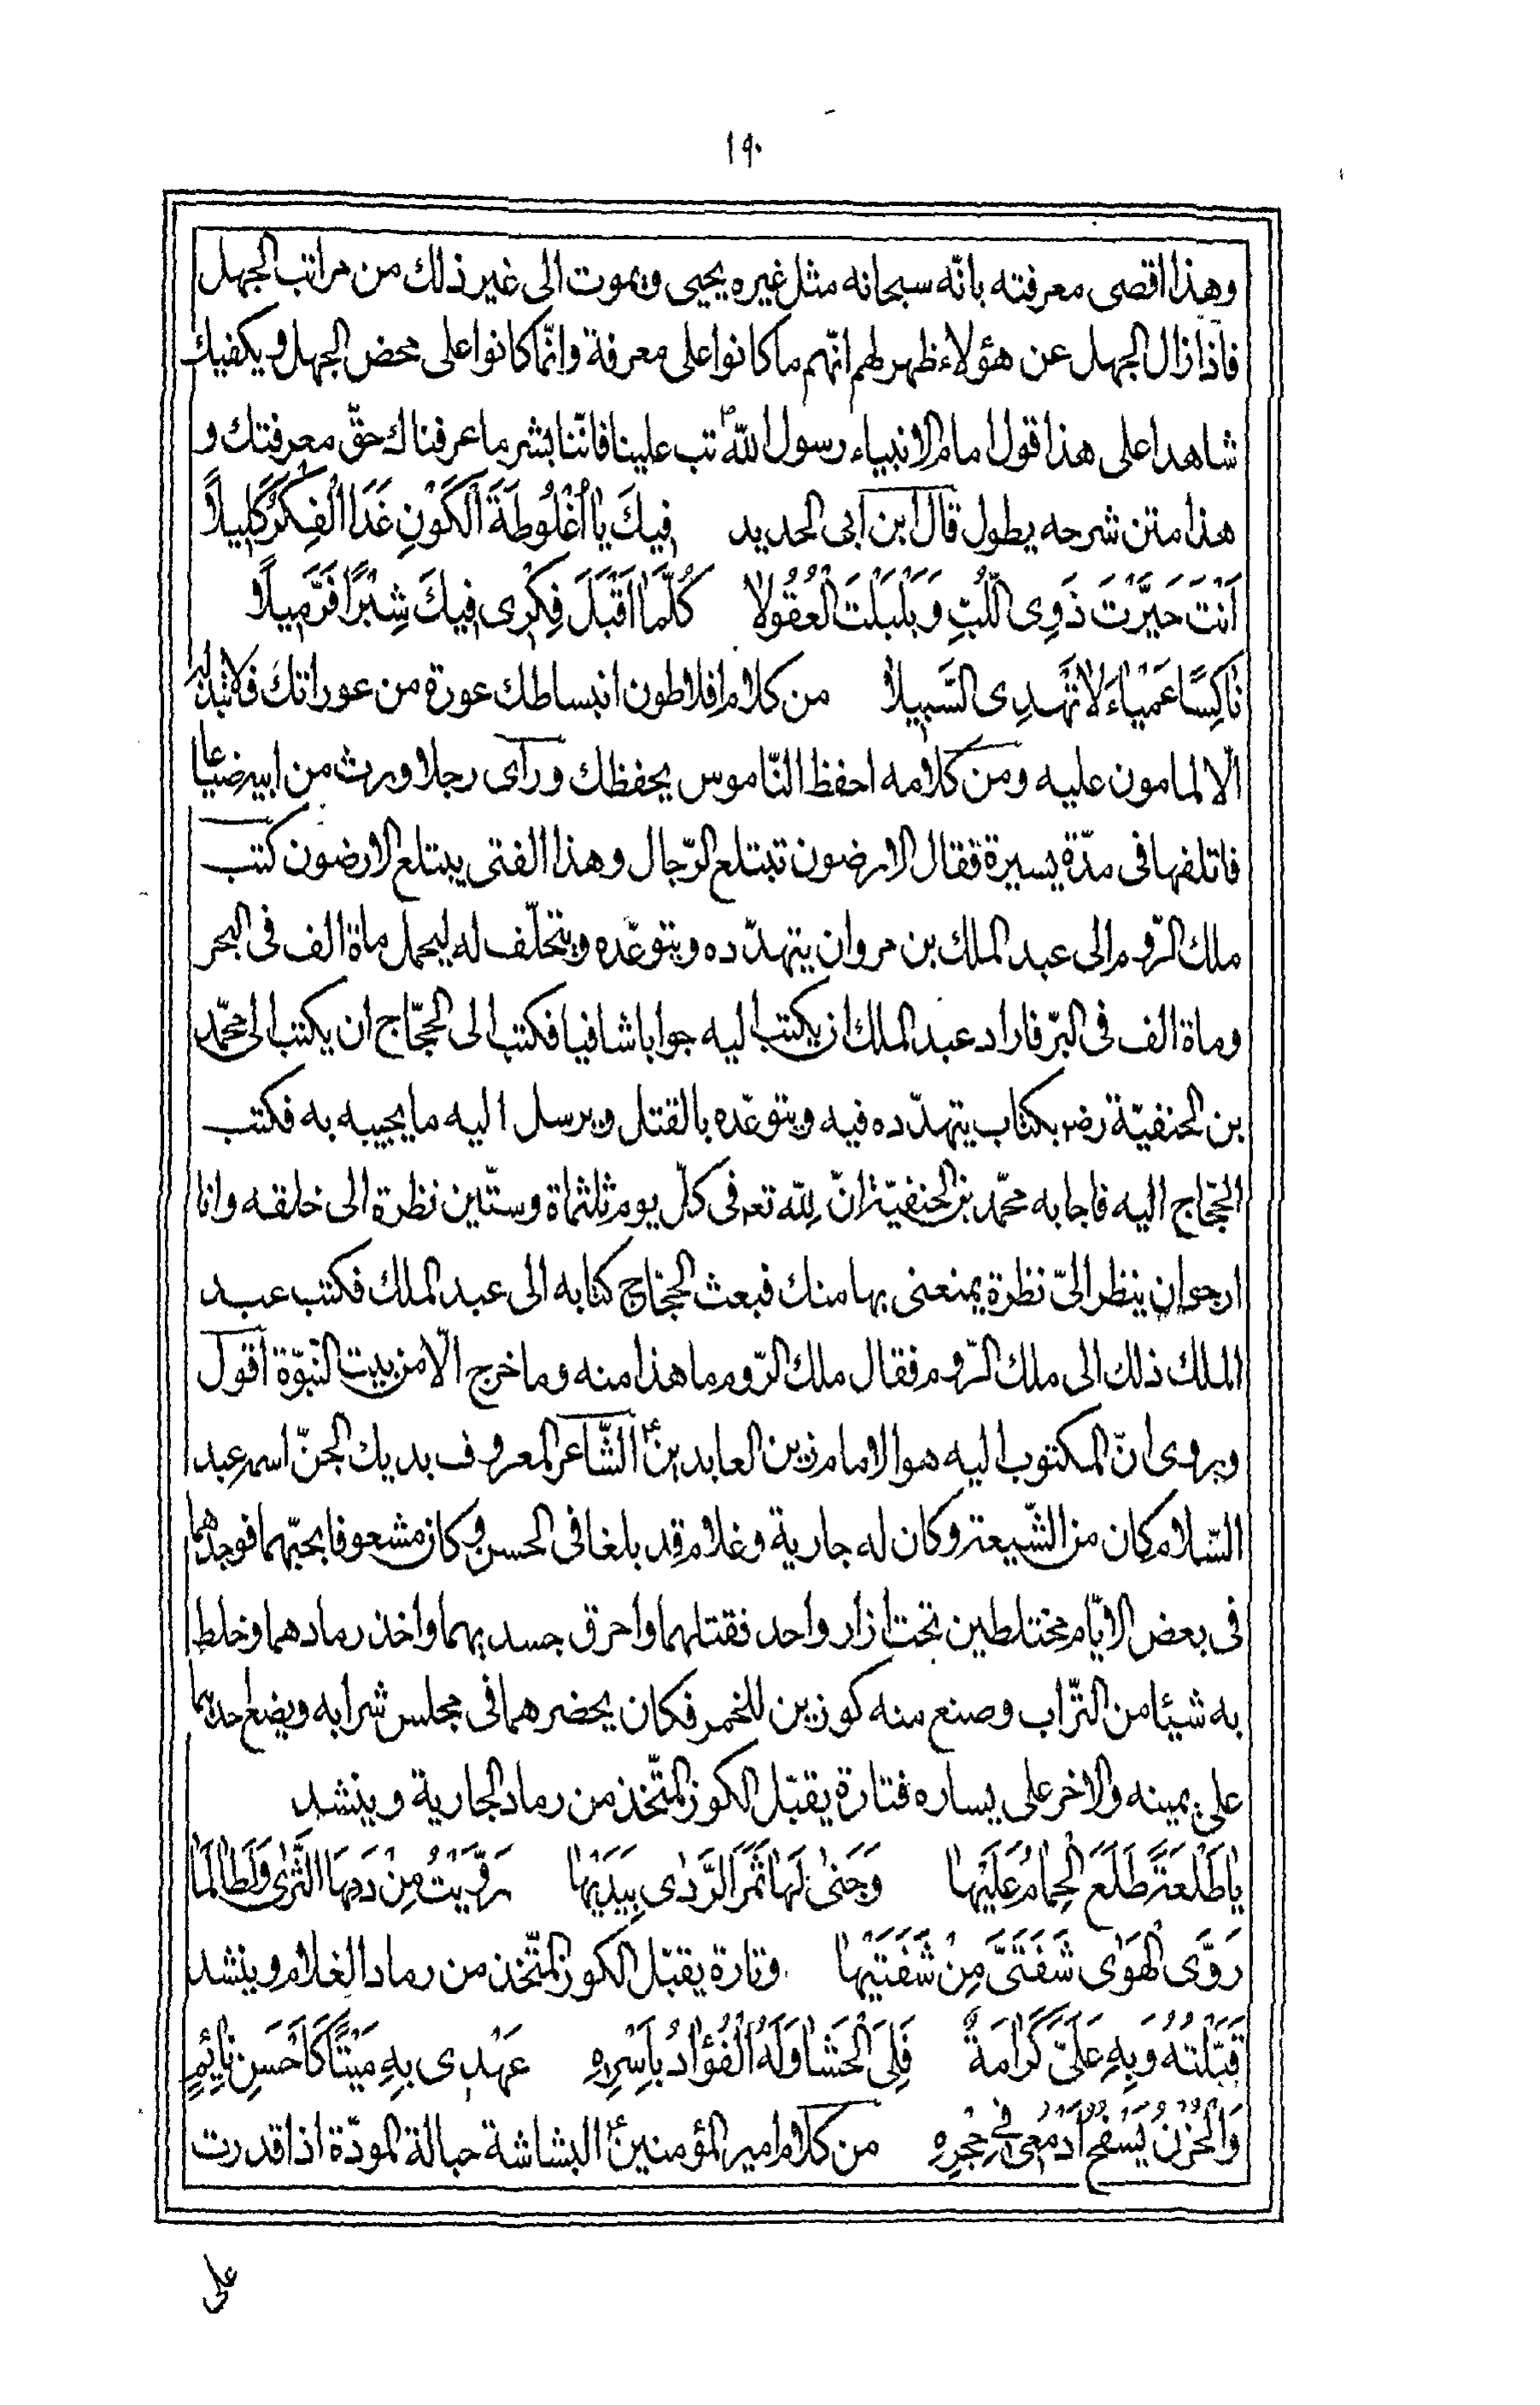 ١٩٠
وهذا اقصى معرفته بانّه سبحانه مثل غيره يحيى ويموت الى غير ذلك من مراتب الجهل
فاذا زال الجهل عن هؤلاء ظهر لهم انّهم ما كانوا على معرفة وانّما كانوا على محض الجهل ويكفيك
شاهدا على هذا قول امام الانبياء رسول اللهص تب علينا فانّنا بشر ما عرفناك حقّ معرفتك و
هذا متن شرحه يطول قال ابن ابى الحديد فِيكَ يا اُغْلُوطَةَ الْكَوْنِ غَدَا الْفِكْرُ كَلِيلاً
اَنْتَ حَيَّرْتَ ذَوِى اللُّبِّ وَبَلْبَلْتَ الْعُقُولا كُلَّمَا اَقْبَلَ فِكْرِى فِيكَ شِبْرًا فَرَّ مِيلاً
نَاكِسًا عَمْيَاءَ لا تَهْدِى السَّبِيلا من كلام افلاطون انبساطك عورة من عوراتك فلا تبذله
الّا لمامون عليه ومن كلامه احفظ النّاموس يحفظك وراى رجلا ورث من ابيه ضياعا
فاتلفها فى مدّة يسيرة فقال الارضون تبتلع الرّجال وهذا الفتى يبتلع الارضون كتب
ملك الرّوم الى عبد الملك بن مروان يتهدّده ويتوعّده ويتحلّف له ليحمل ماة الف فى البحر
وماة الف فى البرّ فاراد عبد الملك ان يكتب اليه جوابا شافيا فكتب الى الحجّاج ان يكتب الى محمّد
بن الحنفيّة رضه بكتاب يتهدّده فيه ويتوعّده بالقتل ويرسل اليه ما يجيبه به فكتب
الحجّاج اليه فاجابه محمّد بن الحنفيّة انّ لله تعه فى كلّ يوم ثلثماة وستّين نظرة الى خلقه وانا
ارجو ان ينظر الىّ نظرة يمنعنى بها منك فبعث الحجّاج كتابه الى عبد الملك فكتب عبد
الملك ذلك الى ملك الرّوم فقال ملك الرّوم ما هذا منه وما خرج الّا من بيت النّبوّة اقول
ويروى انّ المكتوب اليه هو الامام زين العابدينع الشّاعر المعروف بديك الجنّ اسمه عبد
السّلام كان من الشّيعة وكان له جارية وغلام قد بلغا فى الحسن وكان مشعوفا بحبّهما فوجدهما
فى بعض الايّام مختلطين تحت ازار واحد فقتلهما واحرق جسديهما واخذ رمادهما وخلط
به شيئا من التّراب وصنع منه كوزين للخمر فكان يحضرهما فى مجلس شرابه ويضع احدهما
على يمينه والاخر على يساره فتارة يقبّل الكوز المتّخذ من رماد الجارية وينشد
يا طَلْعَةً طَلَعَ الْحِمَامُ عَلَيْهَا وَجَنى لَهَا ثَمَرَ الرَّدى بِيَدَيْهَا رَوَّيْتُ مِنْ دَمِهَا الثَّرى وَلَطَالَمَا
رَوَّى الْهَوى شَفَتَيَّ مِنْ شَفَتَيْهَا وتارة يقبّل الكوز المتّخذ من رماد الغلام وينشد
قَبَّلْتُهُ وَبِهِ عَلَيَّ كَرَامَةٌ فَلِيَ الْحَشَا وَلَهُ الْفُؤَادُ بِاَسْرِهِ عَهْدِى بِهِ مَيْتًا كَاَحْسَنِ نَائِمٍ
وَالْحُزْنُ يَسْفَحُ اَدْمُعِى فِى حِجْرِهِ من كلام امير المؤمنينع البشاشة حبالة المودّة اذا قدرت
على